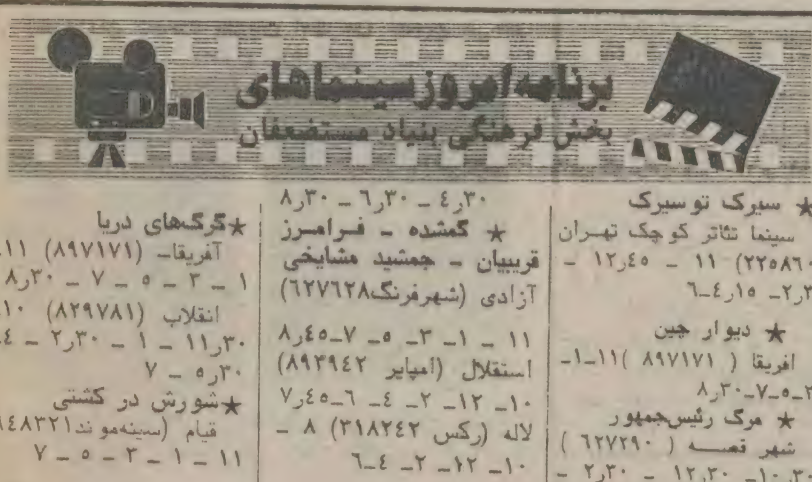 برنامه امروز سینماهای
بخش فرهنگی بنیاد مستضعفان
★ سیرک تو سیرک
سینما تئاتر کوچک تهران
(۲۲۵۸۶۰) ۱۱ – ۱۲٫۴۵ –
۲٫ – ۴٫۱۵ – ۶
★ دیوار چین
افریقا ( ۸۹۷۱۷۱ ) ۱۱–۱–
۳–۵–۷–۸٫۳۰
★ مرگ رئیس‌جمهور
شهر قصــه ( ۶۲۷۲۹۰ )
۱۰٫۳۰ – ۱۲٫۳۰ – ۲٫۳۰ –
۴٫۳۰ – ۶٫۳۰ – ۸٫۳۰
★ گمشده – فرامرز
قریبیان – جمشید مشایخی
آزادی (شهرفرنگ۶۲۷۶۲۸)
۱۱ – ۱– ۳– ۵– ۷–۸٫۴۵
استقلال (امپایر ۸۹۳۹۴۲)
۱۰– ۱۲– ۲– ۴– ۶–۷٫۴۵
لاله (رکس ۳۱۸۲۴۲) ۸ –
۱۰– ۱۲– ۲– ۴–۶
★گرگ‌های دریا
آفریقا– (۸۹۷۱۷۱) ۱۱
۱ – ۳ – ۵ – ۷ – ۸٫۳۰
انقلاب (۸۲۹۷۸۱) ۱۰
۱۱٫۳۰ – ۱ – ۲٫۳۰ – ۴
۵٫۳۰ – ۷
★شورش در کشتی
قیام (سینه‌موند ۶۴۸۳۲۱
۱۱ – ۱ – ۳ – ۵ – ۷